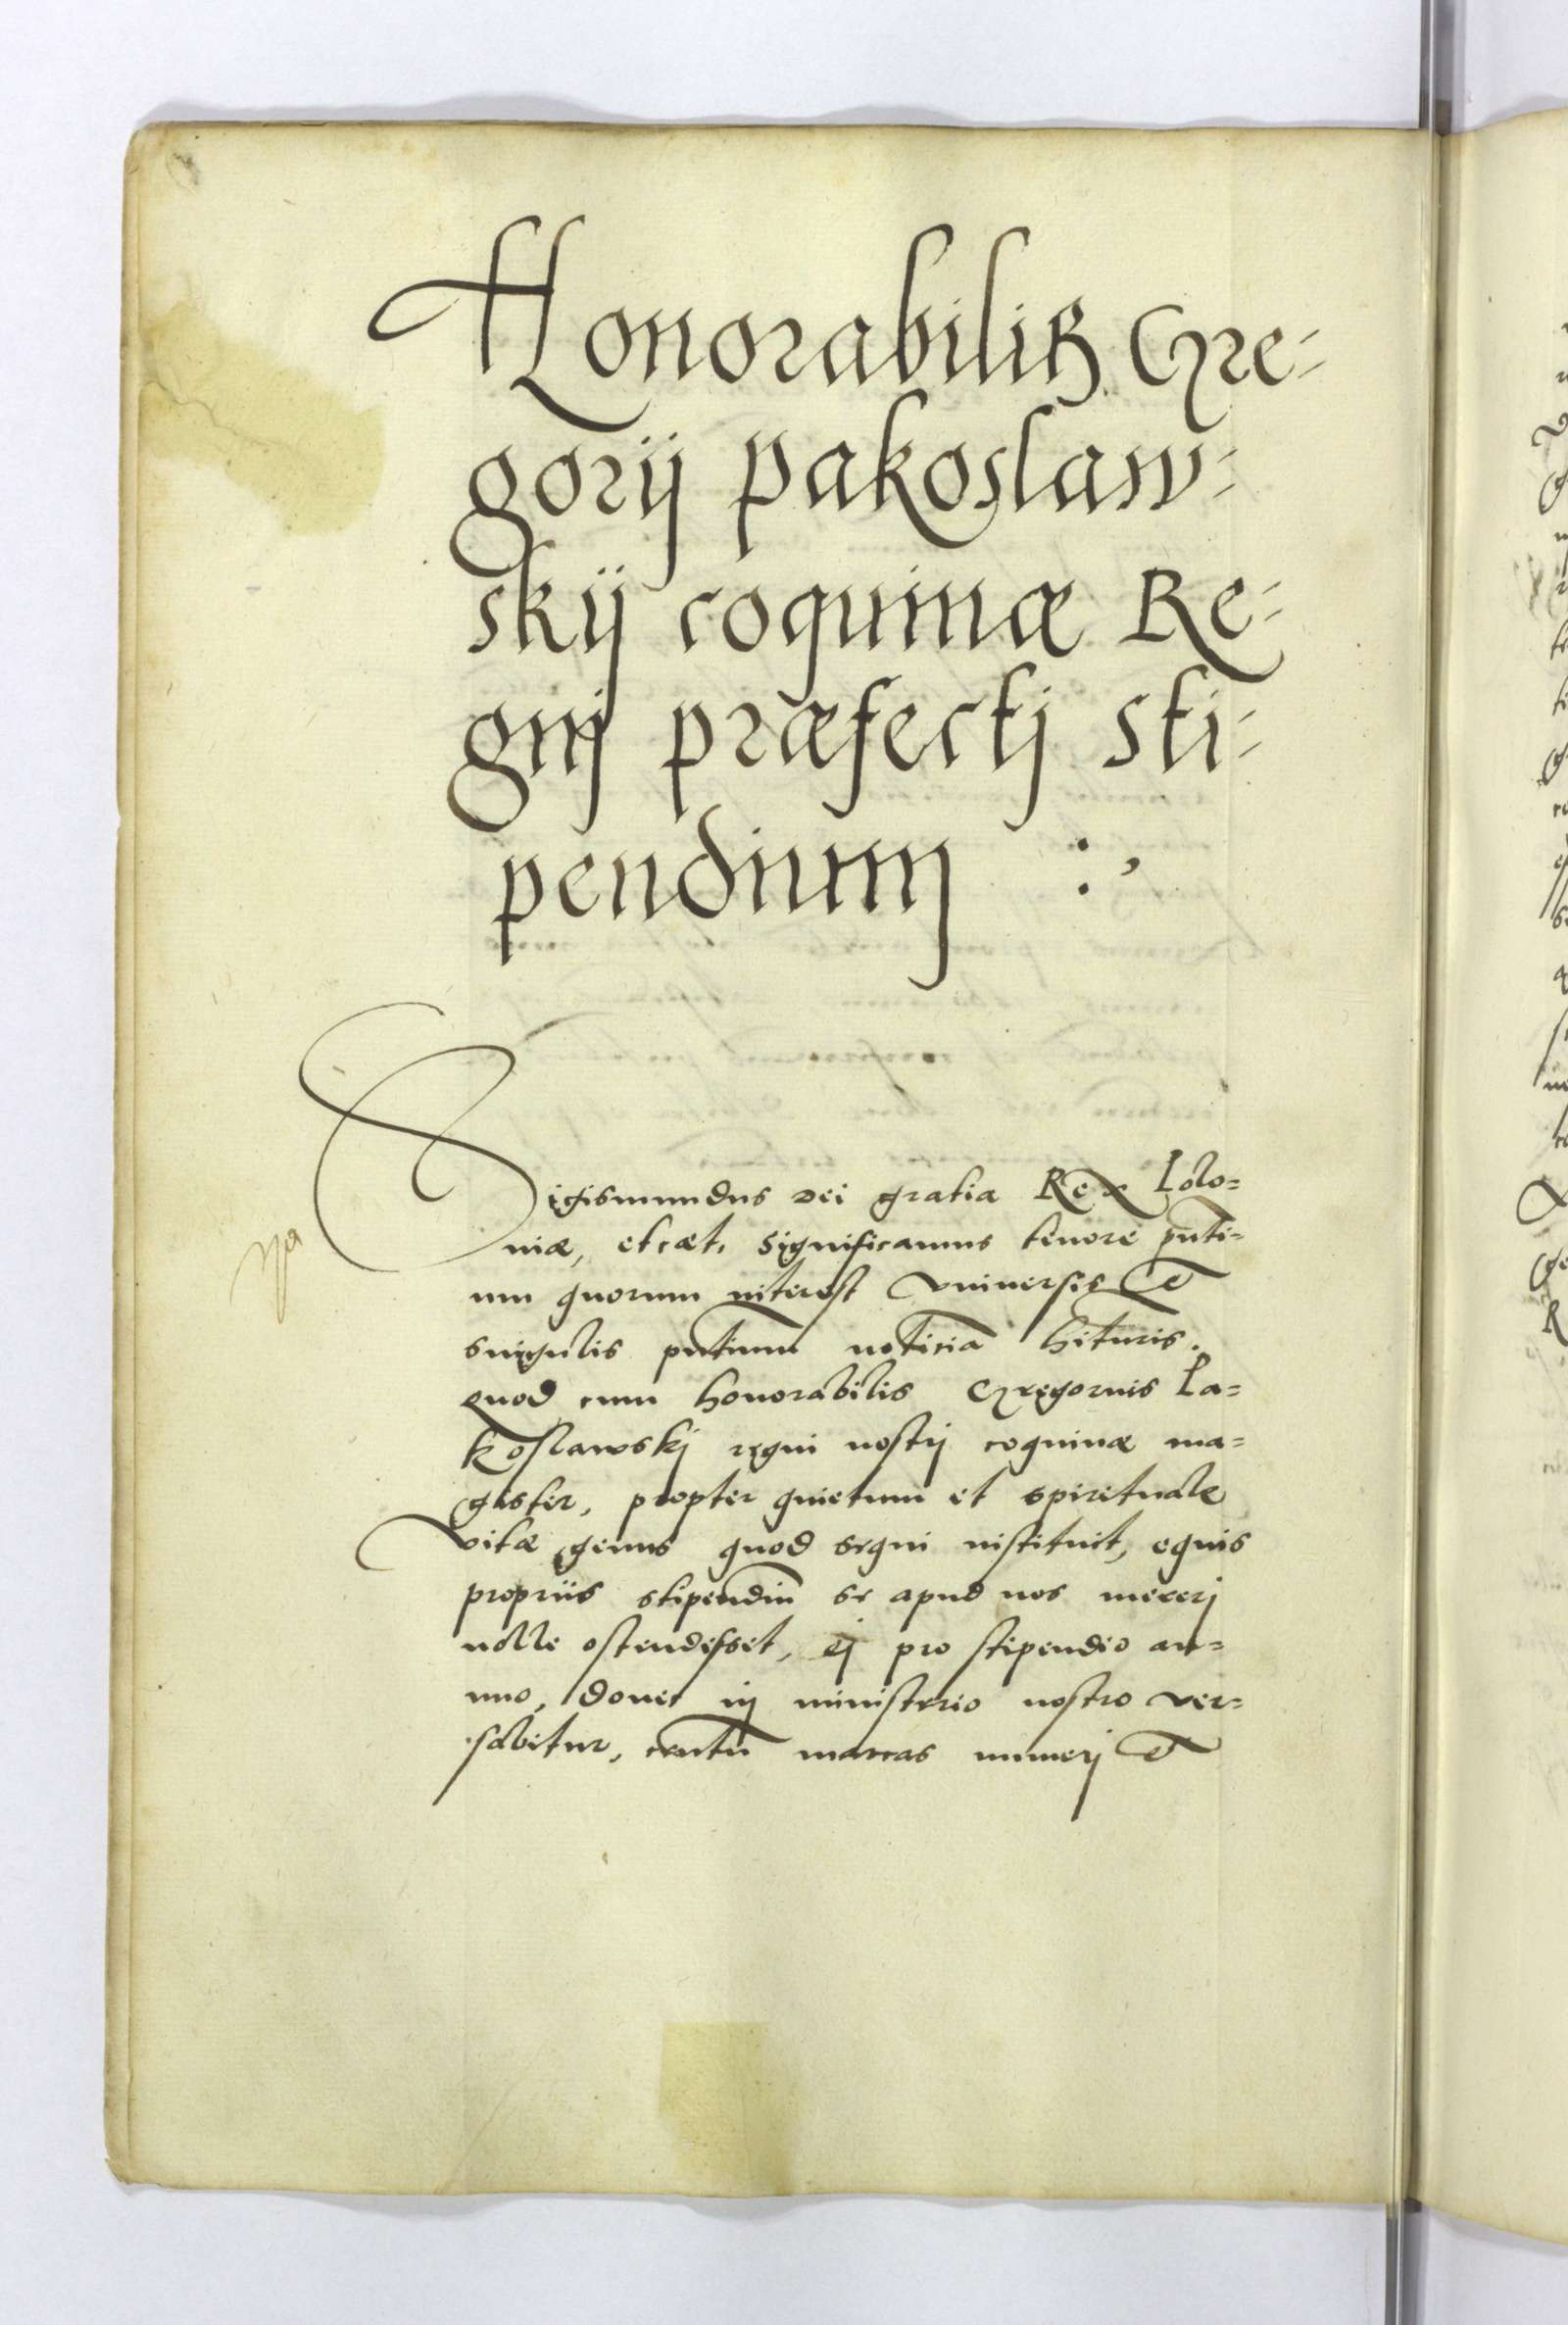 Honorabilis Gre-
gorij Pakoslaw-
skij coquinæ Re-
gnj præfectj sti-
pendium :,
Sigismundus dei gratia Rex Polo-
niæ, etcæt, significamus tenore pñti-
um quorum interest vniversis et
singulis pñtium noticiã hituris.
quod cum honorabilis Gregorius Pa-
koslawskj regni nostrj coquinæ ma-
gister, propter quietum et spirituale
vitæ genus quod sequi instituit, equis
propriis stipendiũ se apud nos mererj
nolle ostendisset, ej pro stipendio an-
nuo, donec in ministerio nostro ver-
sabitur, centũ marcas numerj et